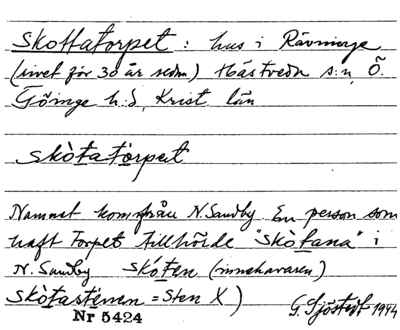 Skottatorpet : hus i Rävninge
(rivet för 30 år sedan) Hästveda s:n, Ö.
Göinge h:d, Krist. län
skòtatòrpeit
Namnet kom från N. Sandby. En person som
haft torpet tillhörde "skòtana" i
N. Sandby skóten (innehavaren)
skòtasténen = sten X)
G. Sjöstedt 1944
Nr 5424